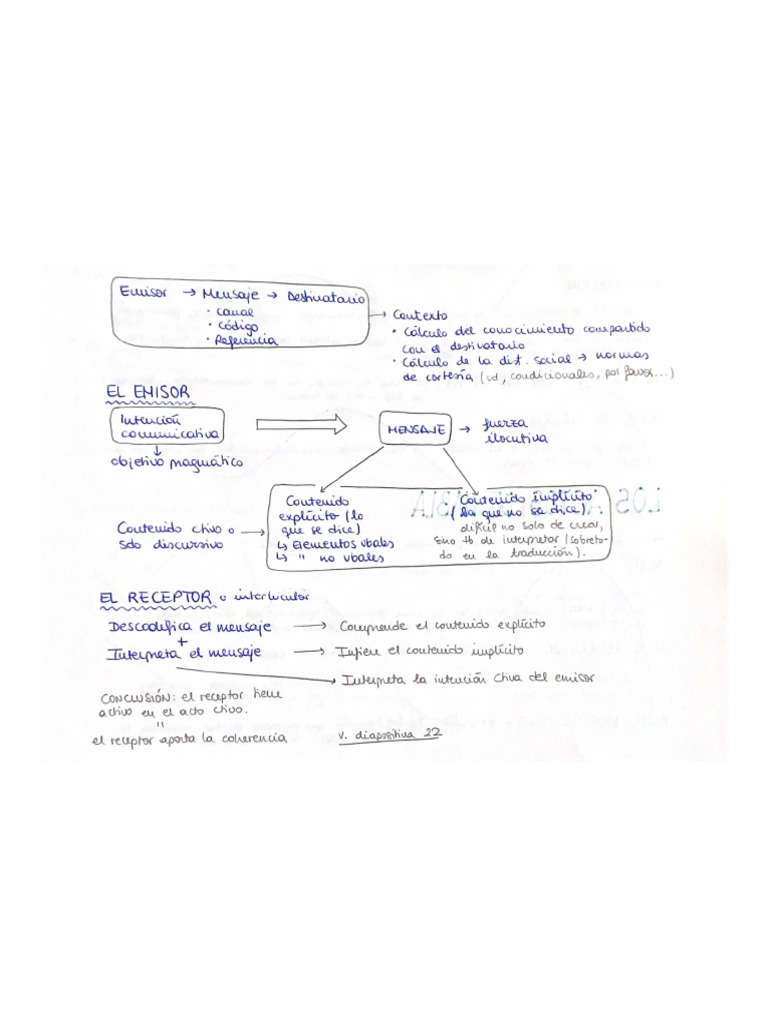 Emisor → Mensaje → Destinatario
· Canal
· Código
· Referencia
→ Contexto
· Cálculo del conocimiento compartido
con el destinatario
· Cálculo de la dist. social → normas
de cortesía (vd, condicionales, por favor...)
EL EMISOR
Intención
comunicativa
MENSAJE → fuerza
ilocutiva
objetivo pragmático
Contenido
explícito (lo
que se dice)
↳ Elementos vbales
↳ " no vbales
Contenido implícito
(lo que no se dice).
difícil no solo de crear,
sino tb de interpretar (sobreto-
do en la traducción).
Contenido ctivo o
sdo discursivo
EL RECEPTOR o interlocutor
Descodifica el mensaje → Comprende el contenido explícito
+
Interpreta el mensaje → Infiere el contenido implícito
→ Interpreta la intención ctiva del emisor
CONCLUSIÓN: el receptor tiene
activo en el acto ctivo.
"
el receptor aporta la coherencia
v. diapositiva 22